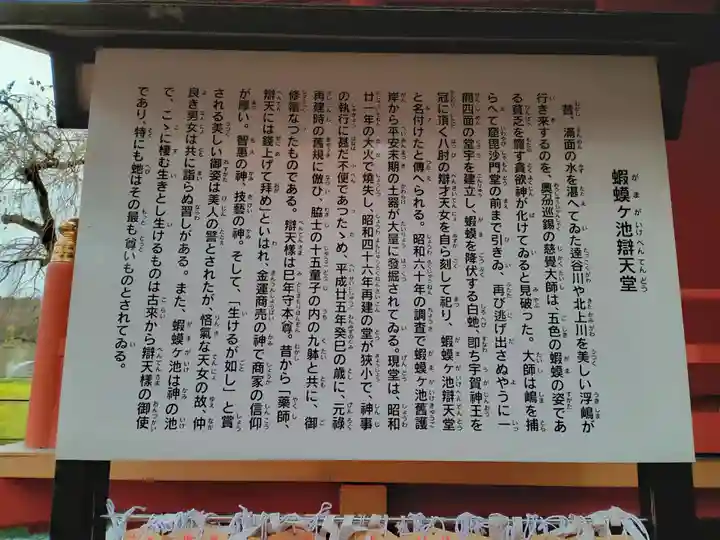 蝦蟆ヶ池辯天堂
昔、満面の水を湛へてゐた達谷川や北上川を美しい浮嶋が
行き来するのを、奥刕巡錫の慈覺大師は、五色の蝦蟆の姿であ
る貧乏を齎す貪欲神が化けてゐると見破つた。大師は嶋を捕
らへて窟毘沙門堂の前まで引きゐ、再び逃げ出さぬやうに一
間四面の堂宇を建立し、蝦蟆を降伏する白虵、卽ち宇賀神王を
冠に頂く八肘の辯才天女を自ら刻して祀り、蝦蟆ヶ池辯天堂
と名付けたと傳へられる。昭和六十年の調査で蝦蟆ヶ池舊護
岸から平安末期の土器が大量に發掘されてゐる。現堂は、昭和
廿一年の大火で燒失し、昭和四十六年再建の堂が狹小で、神事
の執行に甚だ不便であつたゝめ、平成廿五年癸巳の歳に、元祿
再建時の舊規に倣ひ、脇士の十五童子の内の九躰と共に、御
修復なつたものである。辯天樣は巳年守本尊。昔から「藥師、
辯天には錢上げて拜め」といはれ、金運商売の神で商家の信仰
が厚い。智惠の神、技藝の神。そして、「生けるが如し」と賞
される美しい御姿は美人の譽とされたが、悋氣な天女の故、仲
良き男女は共に詣らぬ習しがある。また、蝦蟆ヶ池は神の池
で、こゝに棲む生きとし生けるものは古來から辯天樣の御使
であり、特にも虵はその最も尊いものとされてゐる。